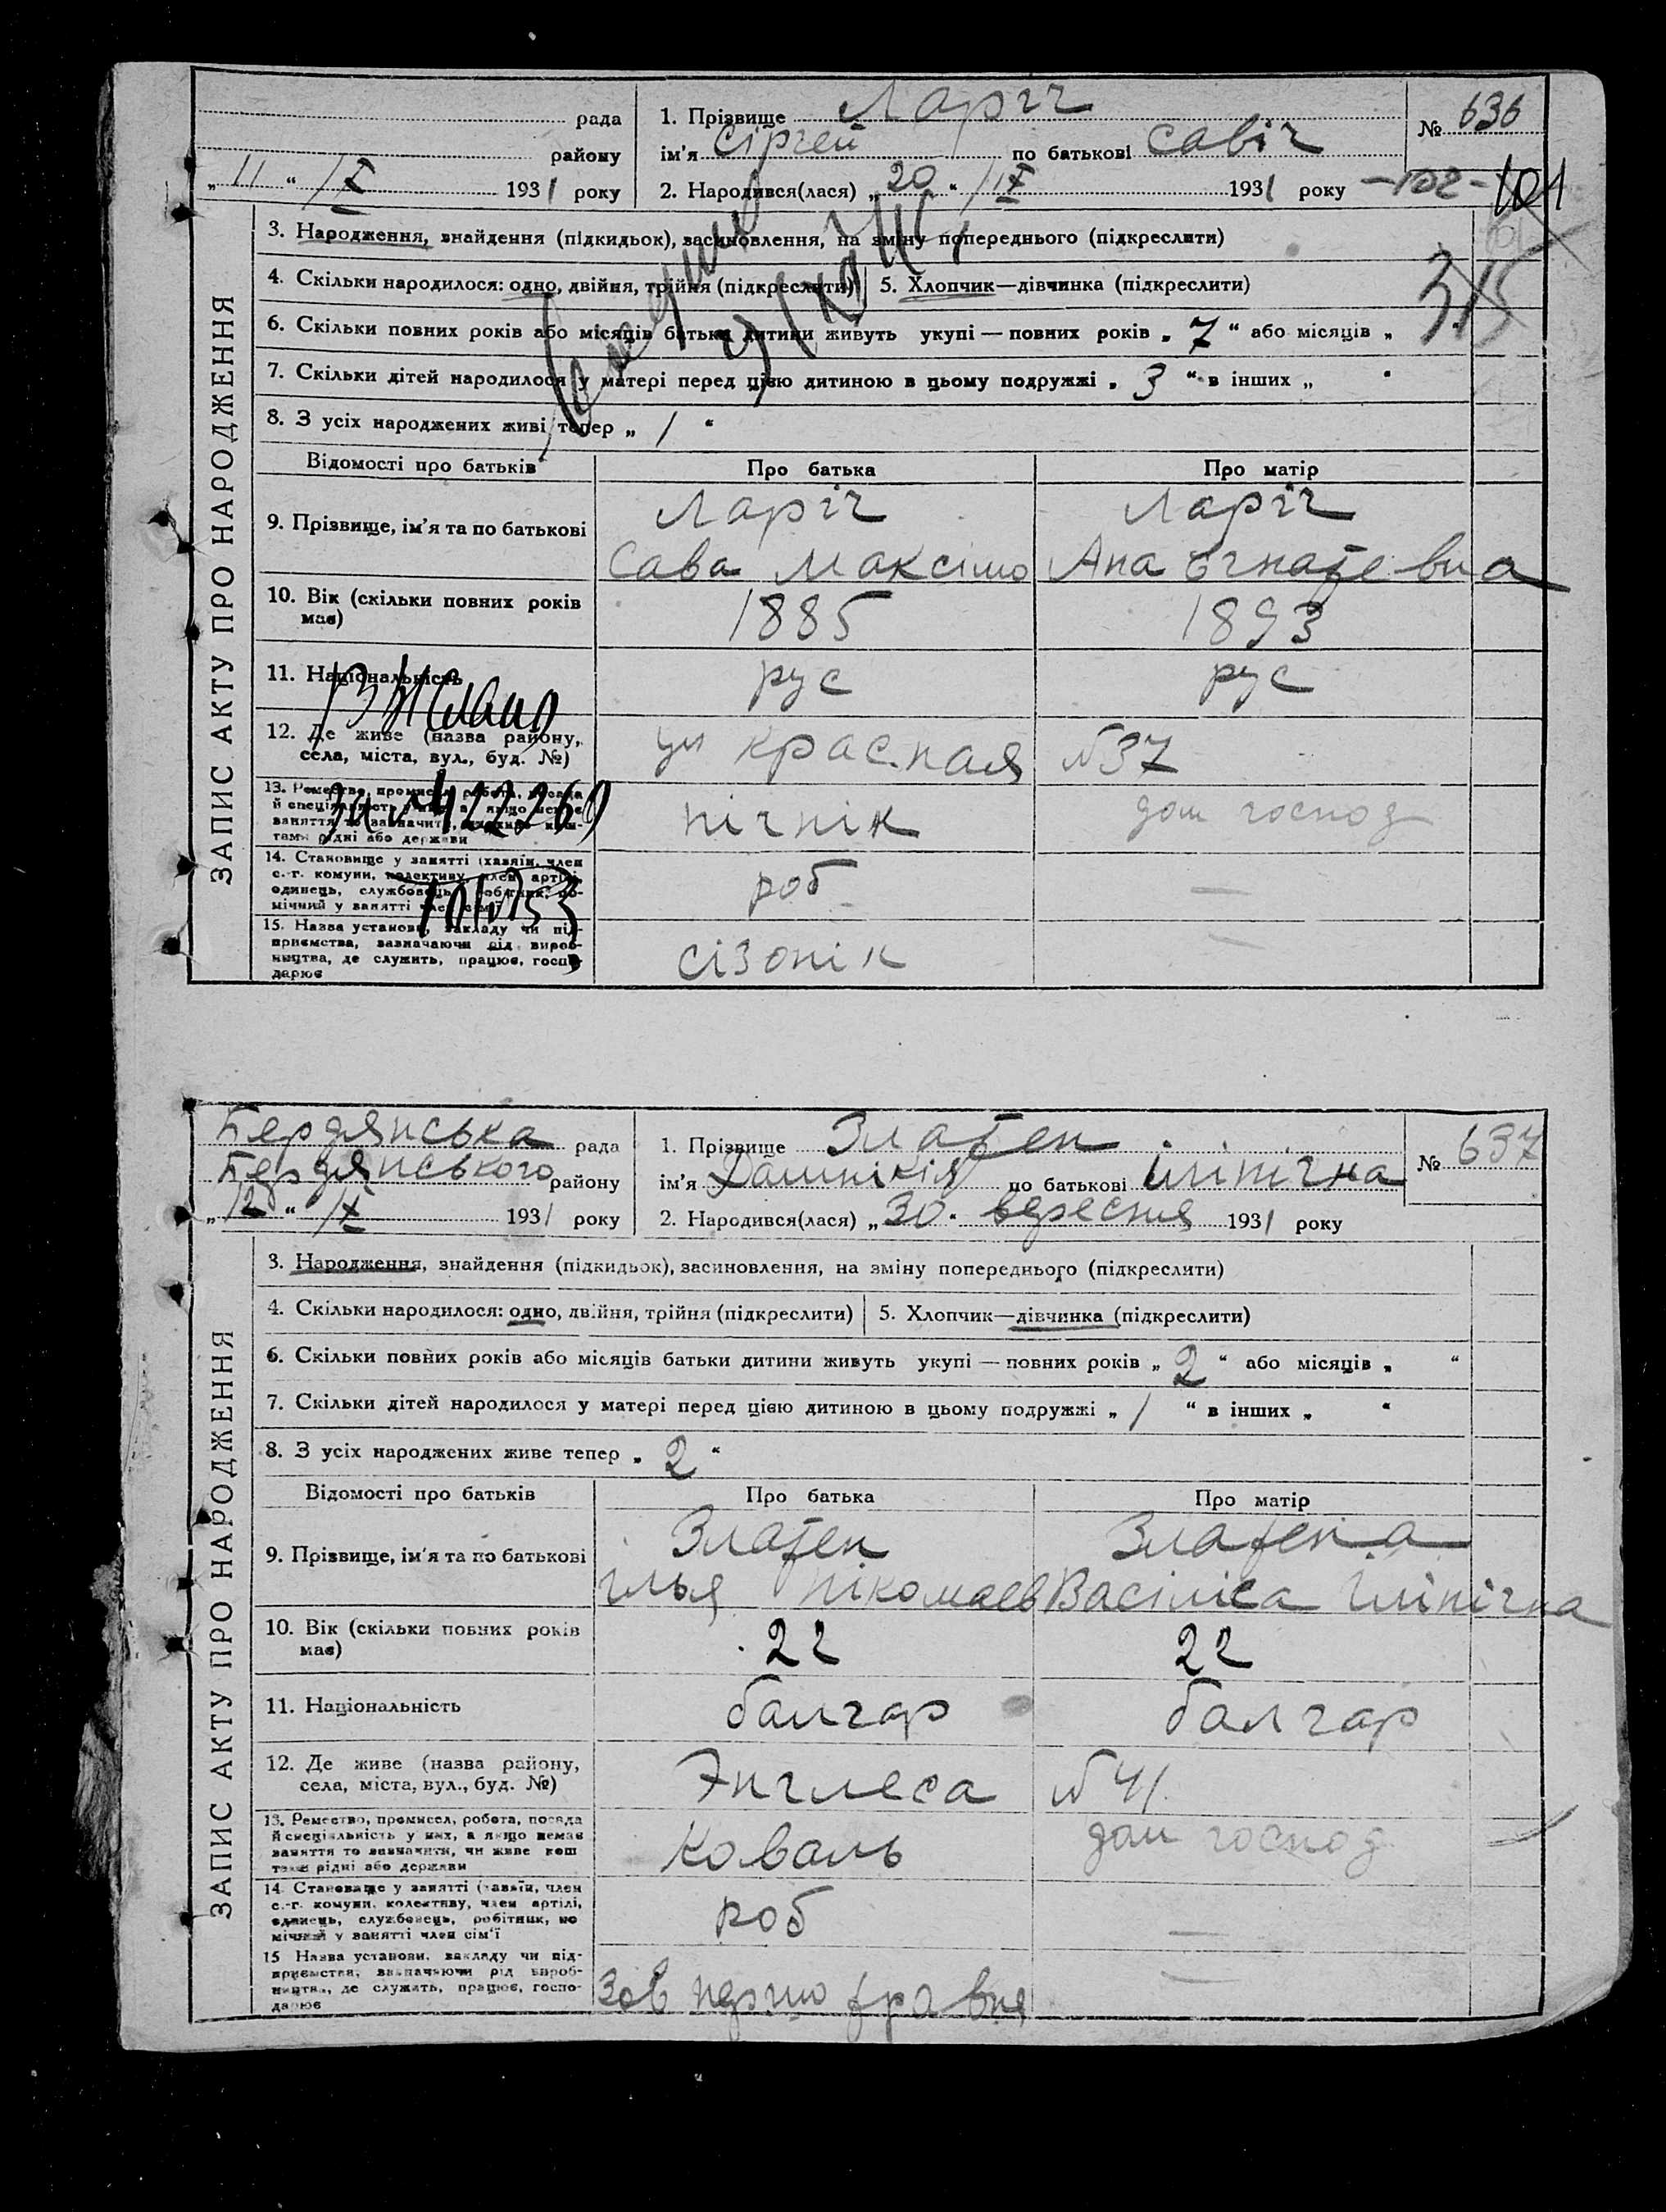 рада
району
„11“ /X 1931 року
1. Прізвище Ларіч
ім'я Сіргей по батькові Савіч
2. Народився(лася) „20“ /IX 1931 року
№ 636
-102- 101
315
ЗАПИС АКТУ ПРО НАРОДЖЕННЯ
3. Народження, знайдення (підкидьок), засиновлення, на зміну попереднього (підкреслити)
4. Скільки народилося: одно, двійня, трійня (підкреслити) 5. Хлопчик—дівчинка (підкреслити)
6. Скільки повних років або місяців батьки дитини живуть укупі — повних років „7“ або місяців „
7. Скільки дітей народилося у матері перед цією дитиною в цьому подружжі „3“ в інших „ “
8. З усіх народжених живі тепер „1“
Відомості про батьків Про батька Про матір
9. Прізвище, ім'я та по батькові Ларіч Ларіч
Сава Максімо Ана Ігнатевна
10. Вік (скільки повних років має) 1885 1893
11. Національність рус рус
12. Де живе (назва району, села, міста, вул., буд. №) ул Красная №37
13. Ремество, промисел, робота, посада й спеціальність у них, а якщо немає заняття то зазначити, чи живе коштами рідні або держави пічнік дом господ
за № 422269
14. Становище у занятті (хазяїн, член с.-г. комуни, колективу, член артілі, одинець, службовець, робітник, помічний у занятті член сім'ї роб —
15. Назва установи, закладу чи підприємства, зазначаючи рід виробництва, де служить, працює, господарює сізонік —
Бердянська рада
Бердянського району
„12“ /X 1931 року
1. Прізвище Златен
ім'я по батькові Ілінічна
2. Народився(лася) „30“ вересня 1931 року
№ 637
ЗАПИС АКТУ ПРО НАРОДЖЕННЯ
3. Народження, знайдення (підкидьок), засиновлення, на зміну попереднього (підкреслити)
4. Скільки народилося: одно, двійня, трійня (підкреслити) 5. Хлопчик—дівчинка (підкреслити)
6. Скільки повних років або місяців батьки дитини живуть укупі — повних років „2“ або місяців „ “
7. Скільки дітей народилося у матері перед цією дитиною в цьому подружжі „1“ в інших „ “
8. З усіх народжених живе тепер „2“
Відомості про батьків Про батька Про матір
9. Прізвище, ім'я та по батькові Златен Златена
Ілья Ніколаєв Васіліса Ілінічна
10. Вік (скільки повних років має) 22 22
11. Національність балгар балгар
12. Де живе (назва району, села, міста, вул., буд. №) Энглеса №41
13. Ремество, промисел, робота, посада й спеціальність у них, а якщо немає заняття то зазначити, чи живе коштами рідні або держави Коваль дом господ
14. Становище у занятті (хазяїн, член с.-г. комуни, колективу, член артілі, одинець, службовець, робітник, помічний у занятті член сім'ї роб —
15 Назва установи, закладу чи підприємства, зазначаючи рід виробництва, де служить, працює, господарює Зав першо травня —